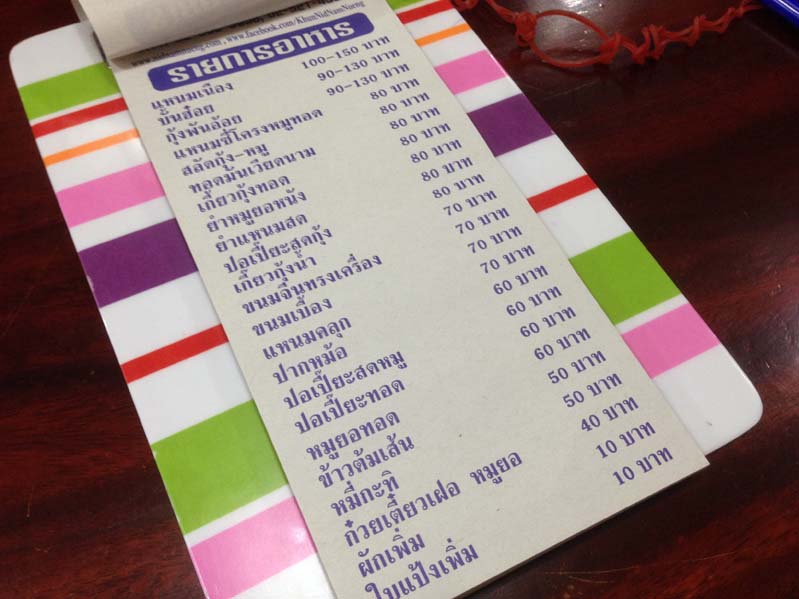 www.nidnamnueng.com , www.facebook.com/KhunNidNamNueng
รายการอาหาร
แหนมเนือง 100-150 บาท
บั๋นฮ๋อย 90-130 บาท
กุ้งพันอ้อย 90-130 บาท
แหนมซี่โครงหมูทอด 80 บาท
สลัดกุ้ง-หมู 80 บาท
ทอดมันเวียดนาม 80 บาท
เกี๊ยวกุ้งทอด 80 บาท
ยำหมูยอหนัง 80 บาท
ยำแหนมสด 80 บาท
ปอเปี๊ยะสดกุ้ง 80 บาท
เกี๊ยวกุ้งน้ำ 70 บาท
ขนมจีนทรงเครื่อง 70 บาท
ขนมเบื้อง 70 บาท
แหนมคลุก 70 บาท
ปากหม้อ 60 บาท
ปอเปี๊ยะสดหมู 60 บาท
ปอเปี๊ยะทอด 60 บาท
หมูยอทอด 60 บาท
ข้าวต้มเส้น 50 บาท
หมี่กะทิ 50 บาท
ก๋วยเตี๋ยวเฝอ หมูยอ 40 บาท
ผักเพิ่ม 10 บาท
ใบแป้งเพิ่ม 10 บาท